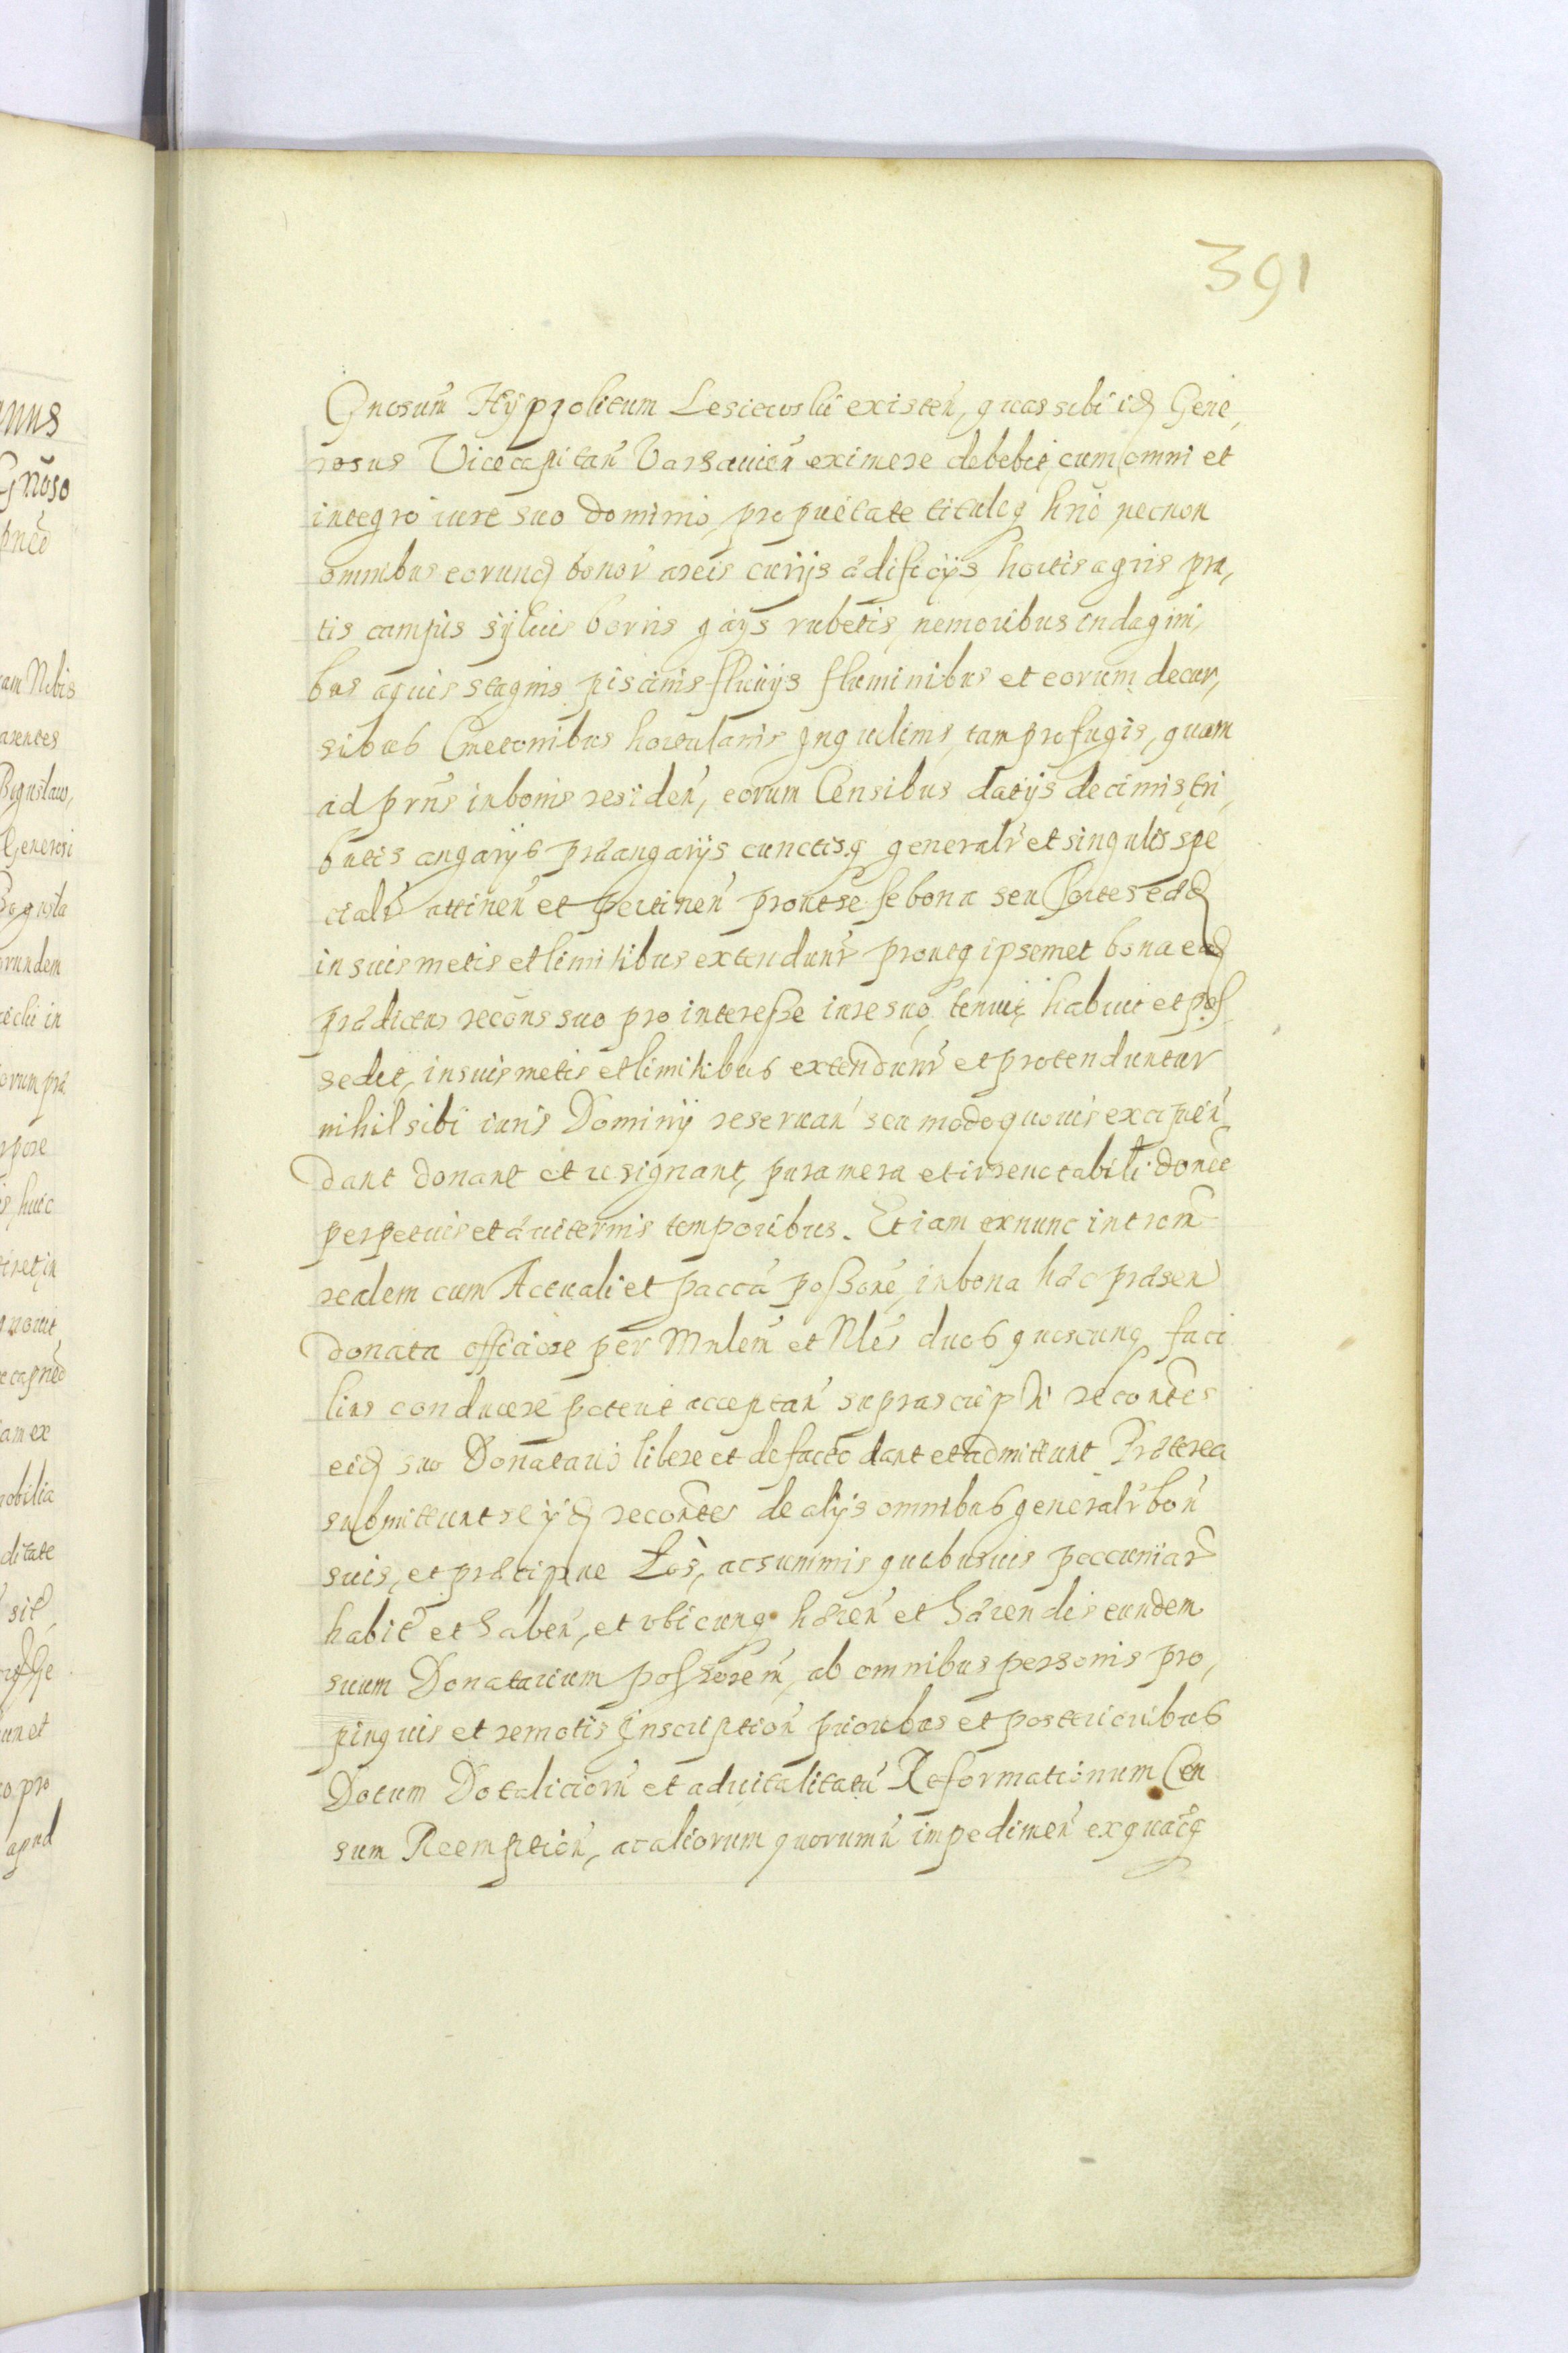 391
Gnosum̃ Hyppolitum Lesiewski existeñ, quas sibi id Gene,
rosus Vicecapitañ Varsavieñ eximere debebit, cum omni et
integro iure suo dominio, proprietate tituloq hrio necnon
omnibus eorund bonor̃ areis curijs ædificijs hortis agris pra,
tis campis sylvis borris gays rubetis, nemoribus indagini,
bus aquis stagnis piscinis fluvijs fluminibus et eorum decur,
sibus Cmetonibus hortulanis Inquilinis, tam profugis, quam
ad prñs in bonis resideñ, eorum Censibus datijs decimis tri,
butis angarijs præangarijs cunctisq generalr̃ et singulis spe
cialr̃ attineñ et pertineñ prout se se bona seu Sortes eæd
in suis metis et limitibus extendunr̃ proutq ipsemet bona ead
prædictus recõns suo pro interesse iure suo, tenuit habuit et pos
sedit, in suis metis et limitibus extendunr̃ et protenduntur
nihil sibi iuris Dominij reservañ seu modo quovis excipieñ
dant donant et resignant, pura mera et irrevocabili donõe
perpetuis et æviternis temporibus. Et iam ex nunc introm̃
realem cum Actuali et paccã possonẽ, in bona hæc præseñ
donata officiose per Mnlem̃ et Nles duos quoscunq faci
lius conducere poterit acceptañ suprascripti recontes
eid suo Donatario libere et de facto dant et admittunt Præterea
submittunt se ijd recontes de alijs omnibus generalr̃ boñ
suis, et præcipue Łoś, ac summis quibusvis peccuniar̃
habit̃ et habeñ, et ubicunq hæreñ et hærendis eundem
suum Donatarium possorem̃, ab omnibus personis pro,
pinquis et remotis Inscriptioñ prioribus et posterioribus
Dotum Dotaliciorũ et advitalitatũ Reformationum Cen
sum Reemptioñ, ac aliorum quorumũ impedimeñ ex quacq